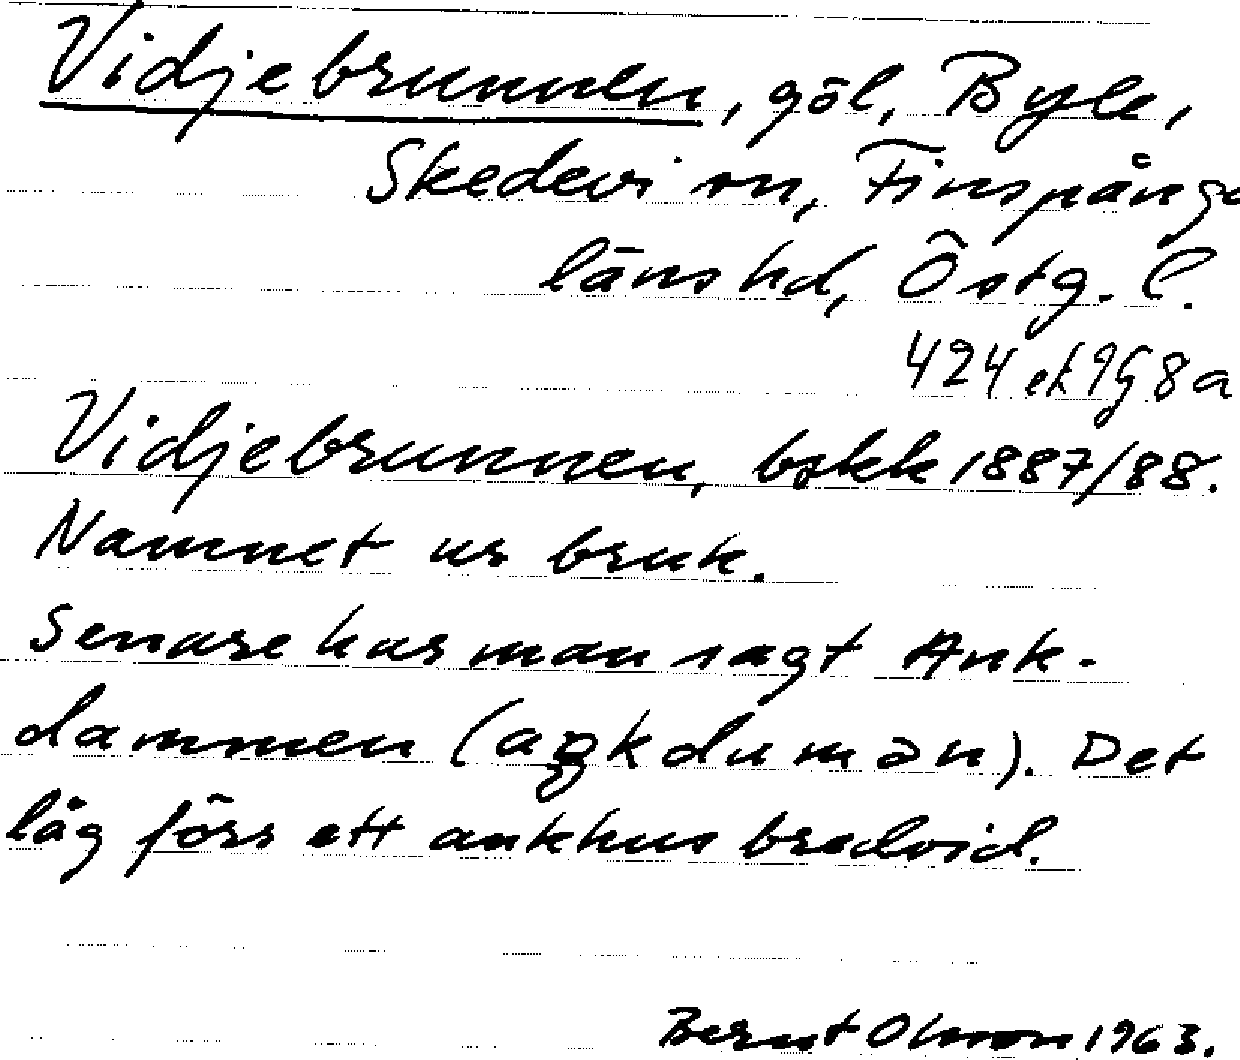 Vidjebrunnen, göl, Byle,
Skedevi sn, Finspånga
läns hd, Östg. l.
424 ek 9G 8a
Vidjebrunnen, bskk 1887/88.
Namnet ur bruk.
Senare har man sagt Ank-
dammen (aŋkdumən). Det
låg förr ett ankhus bredvid.
Bernt Olsson 1963.